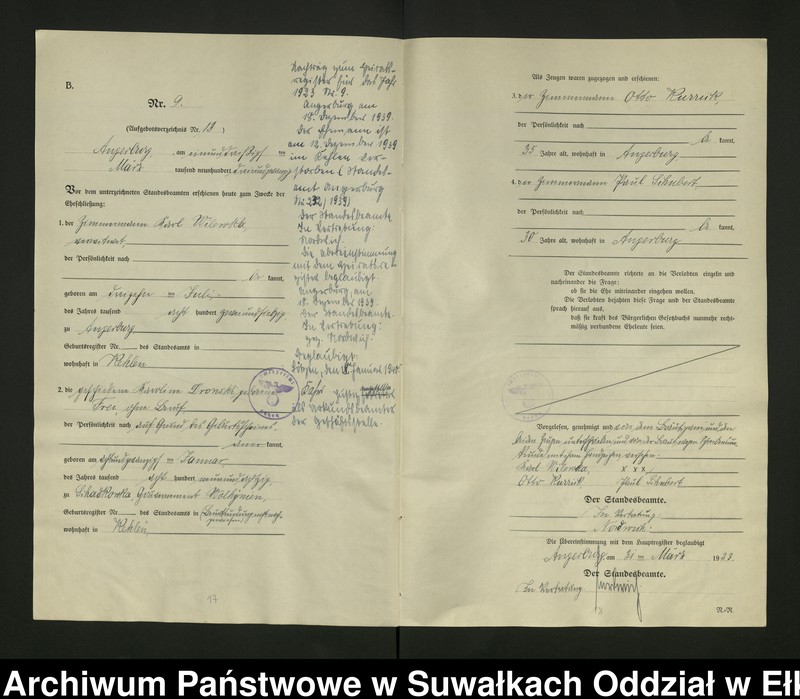 B.
Nr. 9.
(Aufgebotsverzeichnis Nr. 13)
Angerburg, am einunddreißigsten
März tausend neunhundert dreiundzwanzig
Vor dem unterzeichneten Standesbeamten erschienen heute zum Zwecke der
Eheschließung:
1. der Zimmermann Karl Wilewka,
verwitwet,
der Persönlichkeit nach
kannt,
geboren am dreizehn ten Juli
des Jahres tausend acht hundert
zu Angerburg
Geburtsregister Nr. des Standesamts in
wohnhaft in Kehlen
2. die geschiedene Karoline Dronski, geborene
Frei, ohne Beruf
der Persönlichkeit nach auf Grund des Geburtsscheines
kannt,
geboren am achtundzwanzigsten Januar
des Jahres tausend acht hundert neunundachtzig
zu Gouvernement Wolhynien,
Geburtsregister Nr. des Standesamts in
wohnhaft in Kehlen
17
Nachtrag zum Heirats-
register für das Jahr
1923 Nr. 9.
Angerburg am
18. Dezember 1939.
Der Ehemann ist
am 12. Dezember 1939
in Kehlen ver-
storben (Standes-
amt Angerburg
Nr. 232/1939)
Der Standesbeamte
In Vertretung:
Nordwich.
Die Übereinstimmung
mit dem Heiratsre-
gister beglaubigt
Angerburg, am
18. Dezember 1939.
Der Standesbeamte.
In Vertretung:
gez. Nordwich.
Beglaubigt:
Lötzen, den Januar
als Urkundsbeamter
der Geschäftsstelle.
Als Zeugen waren zugezogen und erschienen:
3. der Zimmermann Otto Kurreik,
der Persönlichkeit nach
be kannt,
35 Jahre alt, wohnhaft in Angerburg
4. der Zimmermann Paul Schubert
der Persönlichkeit nach
be kannt,
30 Jahre alt, wohnhaft in Angerburg
Der Standesbeamte richtete an die Verlobten einzeln und
nacheinander die Frage:
ob sie die Ehe miteinander eingehen wollen.
Die Verlobten bejahten diese Frage und der Standesbeamte
sprach hierauf aus,
daß sie kraft des Bürgerlichen Gesetzbuchs nunmehr recht-
mäßig verbundene Eheleute seien.
Vorgelesen, genehmigt und von dem Bräutigam und den
beiden Zeugen unterschrieben und von der Braut wegen Schreibens-
unkunde mit ihrem Handzeichen versehen.
Karl Wilewka, x x x
Otto Kurreik Paul Schubert
Der Standesbeamte.
In Vertretung:
Nordwich.
Die Übereinstimmung mit dem Hauptregister beglaubigt
Angerburg, am 31 ten März 1923
Der Standesbeamte.
In Vertretung
N.-R.
Archiwum Państwowe w Suwałkach Oddział w Eł